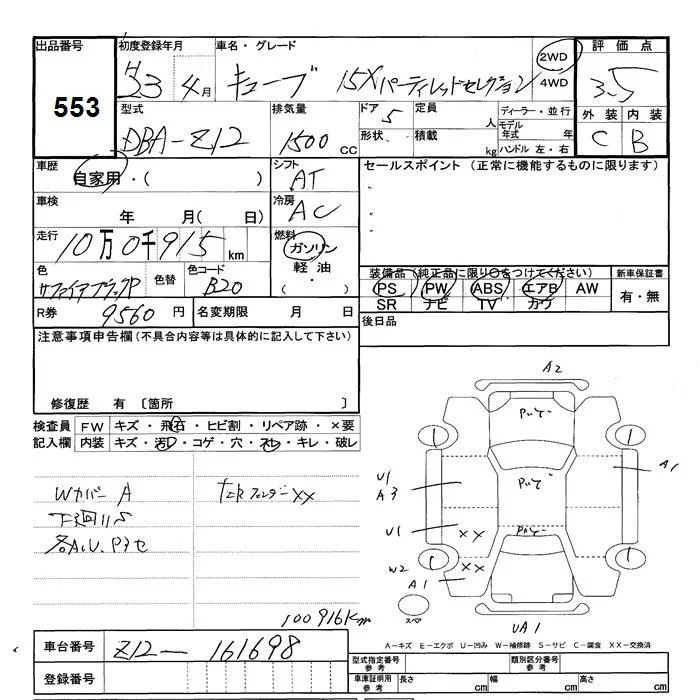 出品番号
553
初度登録年月
H23 4月
車名・グレード
キューブ 15Xパーティレッドセレクション
2WD
4WD
評価点
3.5
外装 内装
C B
型式
DBA-Z12
排気量
1500 CC
ドア
5
定員
人
形状
積載
kg
ディーラー・並行
モデル年式 年
ハンドル 左・右
車歴
自家用・( )
シフト
AT
セールスポイント(正常に機能するものに限ります)
車検
年 月( 日)
冷房
AC
走行
10万0千915km
燃料
ガソリン
軽油
・( )
色
サファイアブラックP
色替
色コード
B20
装備品(純正品に限り○をつけてください)
PS PW ABS エアB AW
SR ナビ TV カワ
新車保証書
有・無
R券
9560円
名変期限 月 日
後日品
注意事項申告欄(不具合内容等は具体的に記入して下さい)
修復歴 有 〔箇所 〕
検査員記入欄
FW キズ・飛石・ヒビ割・リペア跡・×要
内装 キズ・汚れ・コゲ・穴・スレ・キレ・破レ
Wカバー A
下廻りS
各A.U.Pヌセ
フェンダーXX
A2
A1
U1
A3
U1
XX
W2
XX
A1
UA1
スペア
100916Km
A-キズ E-エクボ U-凹み W-補修跡 S-サビ C-腐食 XX-交換済
車台番号
Z12-161698
登録番号
型式指定番号 参考
類別区分番号 参考
車庫証明用 参考
長さ cm
幅 cm
高さ cm